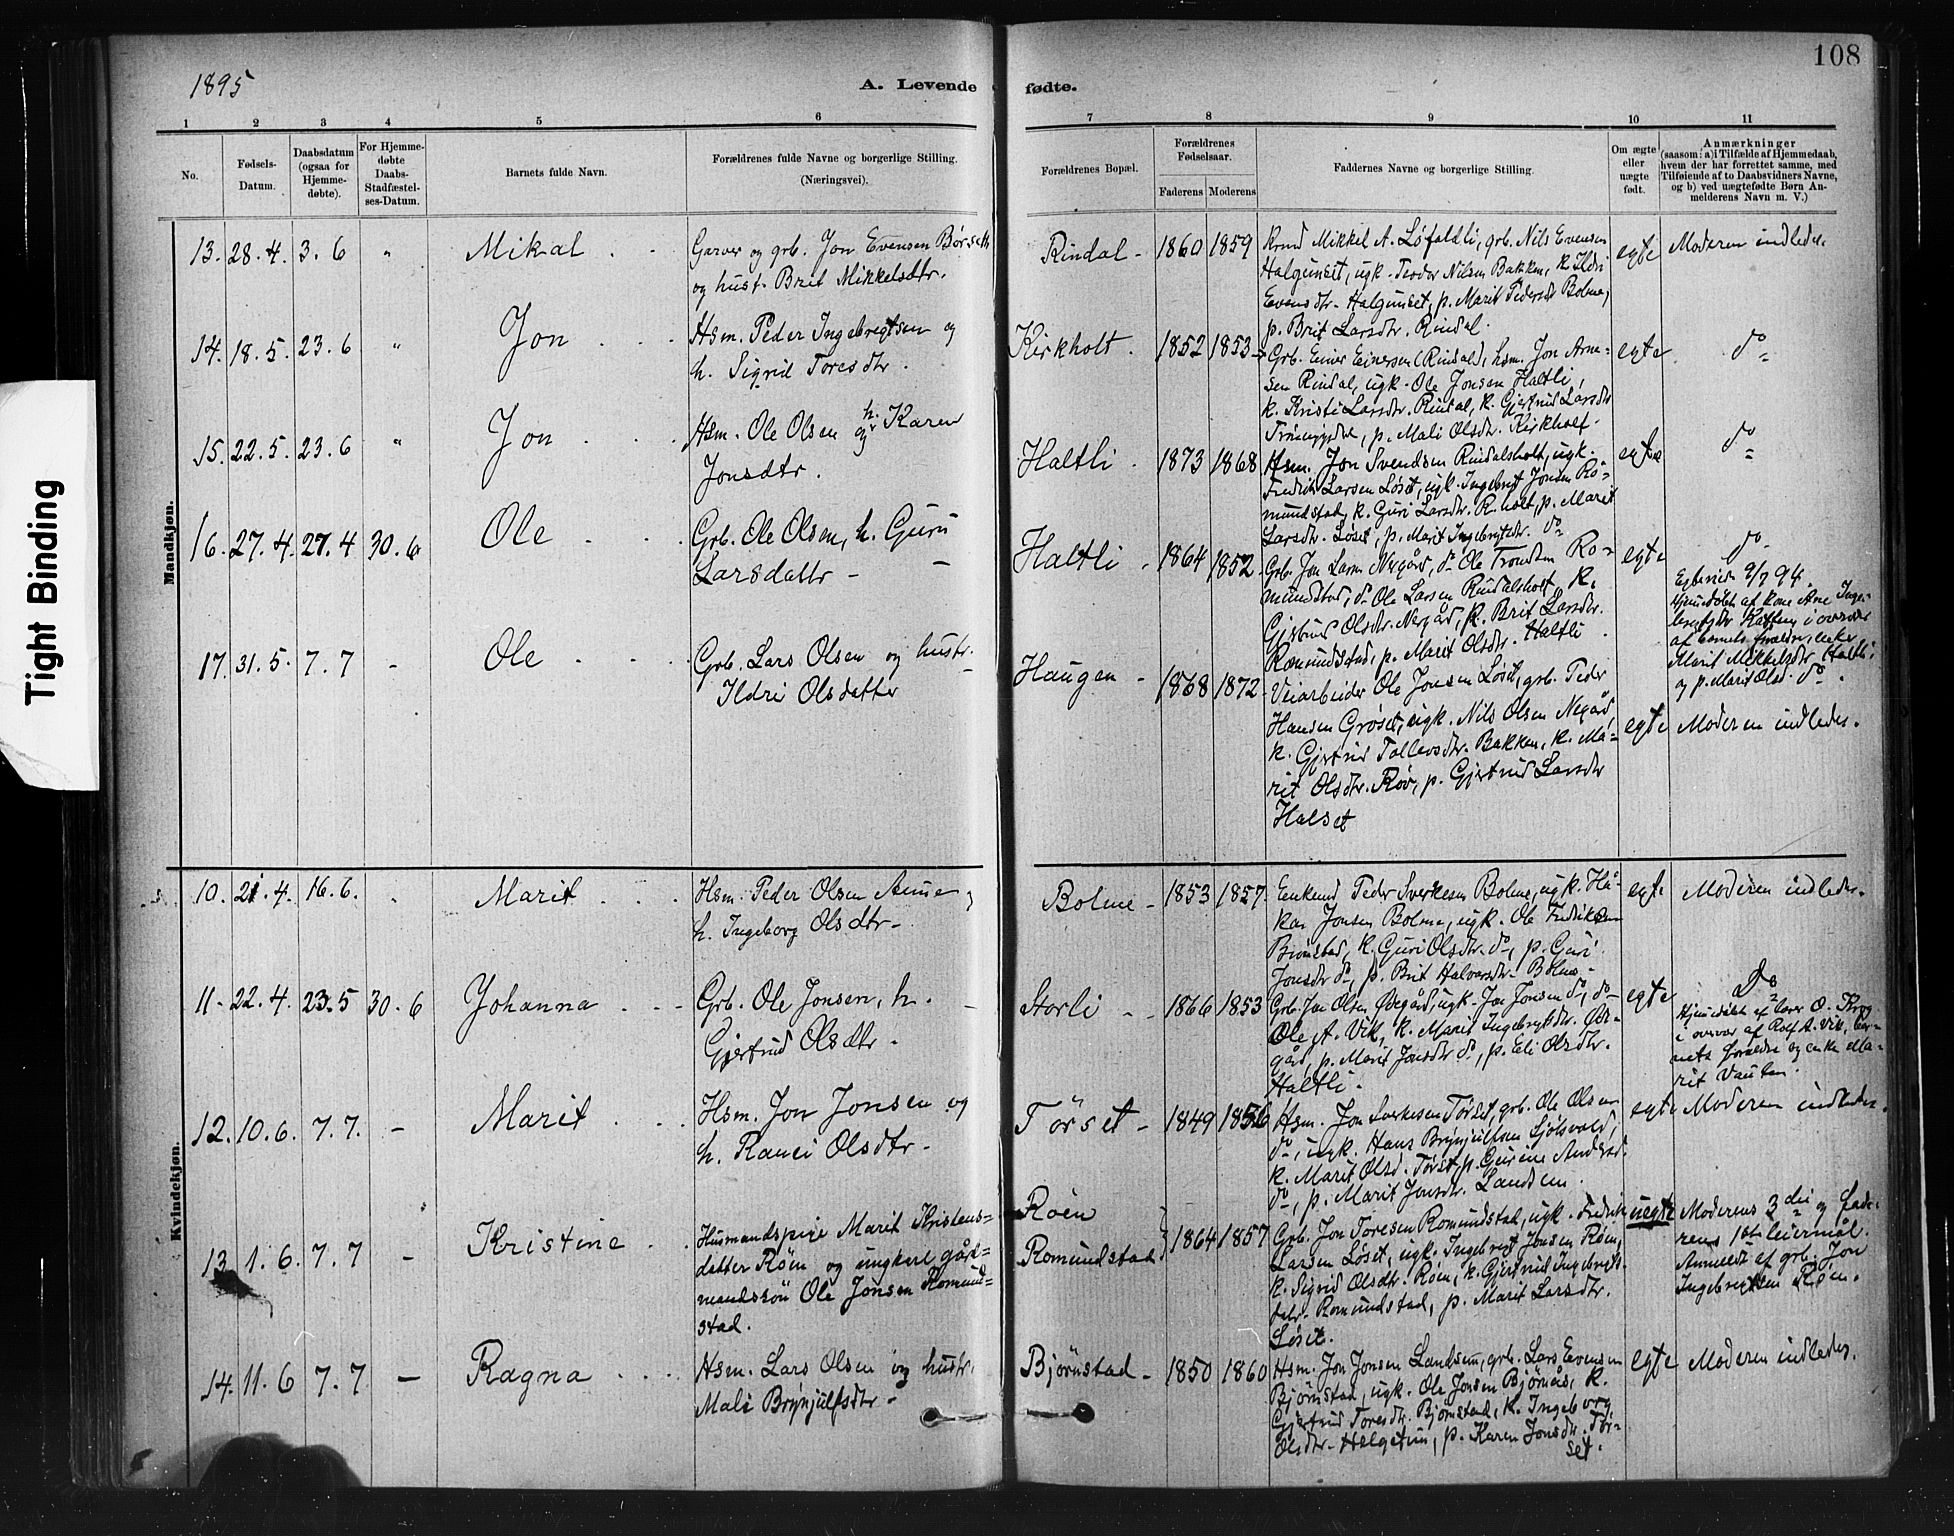 108
1895
A. Levende fødte.
1 2 3 4 5 6 7 8 9 10 11
No.
Fødsels-
Datum.
Daabsdatum
(ogsaa for
Hjemme-
døbte).
For Hjemme-
døbte
Daabs-
Stadfæstel-
ses-Datum.
Barnets fulde Navn.
Forældrenes fulde Navne og borgerlige Stilling.
(Næringsvei).
Forældrenes Bopæl.
Forældrenes
Fødselsaar.
Faderens Moderens
Faddernes Navne og borgerlige Stilling.
Om ægte
eller
uægte
født.
Anmærkninger
(saasom: a) i Tilfælde af Hjemmedaab,
hvem der har forrettet samme, med
Tilføiende af to Daabsvidners Navne,
og b) ved uægtefødte Børn An-
melderens Navn m. V.)
Tight Binding
Mandkjøn.
13. 28.4. 3.6 " Mikal
Garver og grb. Jon Evensen Børseth
og hust. Brit Mikkelsdtr.
Rindal - 1860 1859
Mikkel A. Løfaldli, grb. Nils Evensen
Halgunset, ugk. Teodor Nilsen Bakken, k. Ildri
Evensdtr. Halgunset, p. Marit Pedersdtr Bolme,
p. Brit Larsdtr. Rindal.
egte Moderen indledet.
14. 18.5. 23.6 " Jon
Hsm. Peder Ingebrigtsen og
h. Sigrid Toresdtr.
Kirkholt. 1852 1853
Grb. Einer Einersen (Rindal), hsm. Jon Arne-
sen Rindal, ugk. Ole Jonsen Haltli,
k. Kristi Larsdtr. Rindal, k. Gjertrud Larsdtr
p. Mali Olsdtr. Kirkholt.
egte do
15. 22.5. 23.6 " Jon
Hsm. Ole Olsen og h. Karen
Jonsdtr.
Haltli. 1873 1868
Hsm. Jon Svendsen Rindalsholt, ugk.
Fredrik Larsen Løset, ugk. Ingebrigt Jonsen Ro-
mundstad, k. Guri Larsdtr. R.holt, p. Marit
Larsdtr. Løset, p. Marit Ingebrigtsdtr. do
egte do
16. 27.4. 27.4 30.6 Ole
Grb. Ole Olsen, h. Guru
Larsdattr -
Haltli - 1864 1852.
Grb. Jon Larsen Negård, do Ole Trondsen Ro-
mundstad, do Ole Larsen Rindalsholt, k.
Gjertrud Olsdtr. Negård, k. Brit Larsdtr.
Romundstad, p. Marit Olsdtr. Haltli.
egte do
Egteviet 9/7 94.
Hjemedøbt af kone Ane Inge-
i overvær
af barnets forældre, enke
Marit Mikkelsdtr Haltli
og p. Marit Olsd. do.
17. 31.5. 7.7 - Ole
Grb. Lars Olsen og hustr.
Ildri Olsdatter
Haugen - 1868 1872
Veiarbeider Ole Jonsen Løset, grb. Peder
Hansen Grøset, ugk. Nils Olsen Negård,
k. Gjertrud Tollevsdtr. Bakken, k. Ma-
rit Olsdtr. Røv, p. Gjertrud Larsdtr
Halset
egte Moderen indledet.
Kvindekjøn.
10. 21.4. 16.6. Marit
Hsm. Peder Olsen og
h. Ingeborg Olsdtr -
Bolme - 1853 1857.
Enkemd Peder Sverkesen Bolme, ugk. Hå-
kon Jonsen Bolme, ugk. Ole Fredriksen
Bjørnstad, k. Guri Olsdtr. do, p. Guri
Jonsdtr do, p. Brit Halvorsdtr. Bolme -
egte Moderen indledet.
11- 22.4. 23.5 30.6 Johanna
Grb. Ole Jonsen, h.
Gjertrud Olsdtr.
Storli - 1866 1853
Grb. Jon Olsen Øvegård, ugk. Jon Jonsen do, do
Ole A. Vik, k. Marit Ingebrigtsdtr. Øve-
gård, p. Marit Jonsdtr do, p. Eli Olsdtr.
Haltli.
egte Do
Hjemedøbt af lærer O.
i overvær af Rolf A. Vik, bar-
nets forældre og enke Ma-
rit
12. 10.6. 7.7. - Marit
Hsm. Jon Jonsen og
h. Ranei Olsdtr -
Tørset - 1849 1856
Hsm. Jon Sverkesen Tørset, grb. Ole Olsen
do, ugk. Hans Brynjulfsen Sjølsvold,
k. Marit Olsd. Tørset, p. Gurine Andersd.
do, p. Marit Jonsdtr. Landsem.
egte Moderen indledet.
13 1.6. 7.7 - Kristine
Husmandspige Marit Kristens-
datter Røen og ungkarl gård-
mandssøn Ole Jonsen Romund-
stad.
Røen
Romundstad 1864 1857
Grb. Jon Toresen Romundstad, ugk. Fredrik
Larsen Løset, ugk. Ingebrigt Jonsen Røen,
k. Sigrid Olsdtr. Røen, k. Gjertrud Ingebrigts-
datr. Romundstad, p. Marit Larsdtr.
Løset.
uegte
Moderens 3die og fade-
rens 1ste leiermål.
Anmeldt af grb. Jon
Ingebrigtsen Røen.
14. 11.6 7.7 - Ragna
Hsm. Lars Olsen og hustr.
Mali Brynjulfsdtr -
Bjørnstad - 1850 1860
Hsm. Jon Jonsen Landsem, grb. Lars Evensen
Bjørnstad, ugk. Ole Jonsen Bjørnås, k.
Gjertrud Toresdtr. Bjørnstad, k. Ingeborg
Olsdtr. Helgetun, p. Karen Jonsdtr. Tør-
set.
egte Moderen indledet.